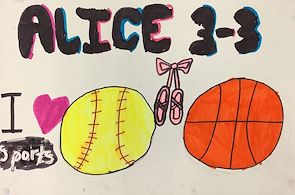 ALICE 3-3
I
Sports